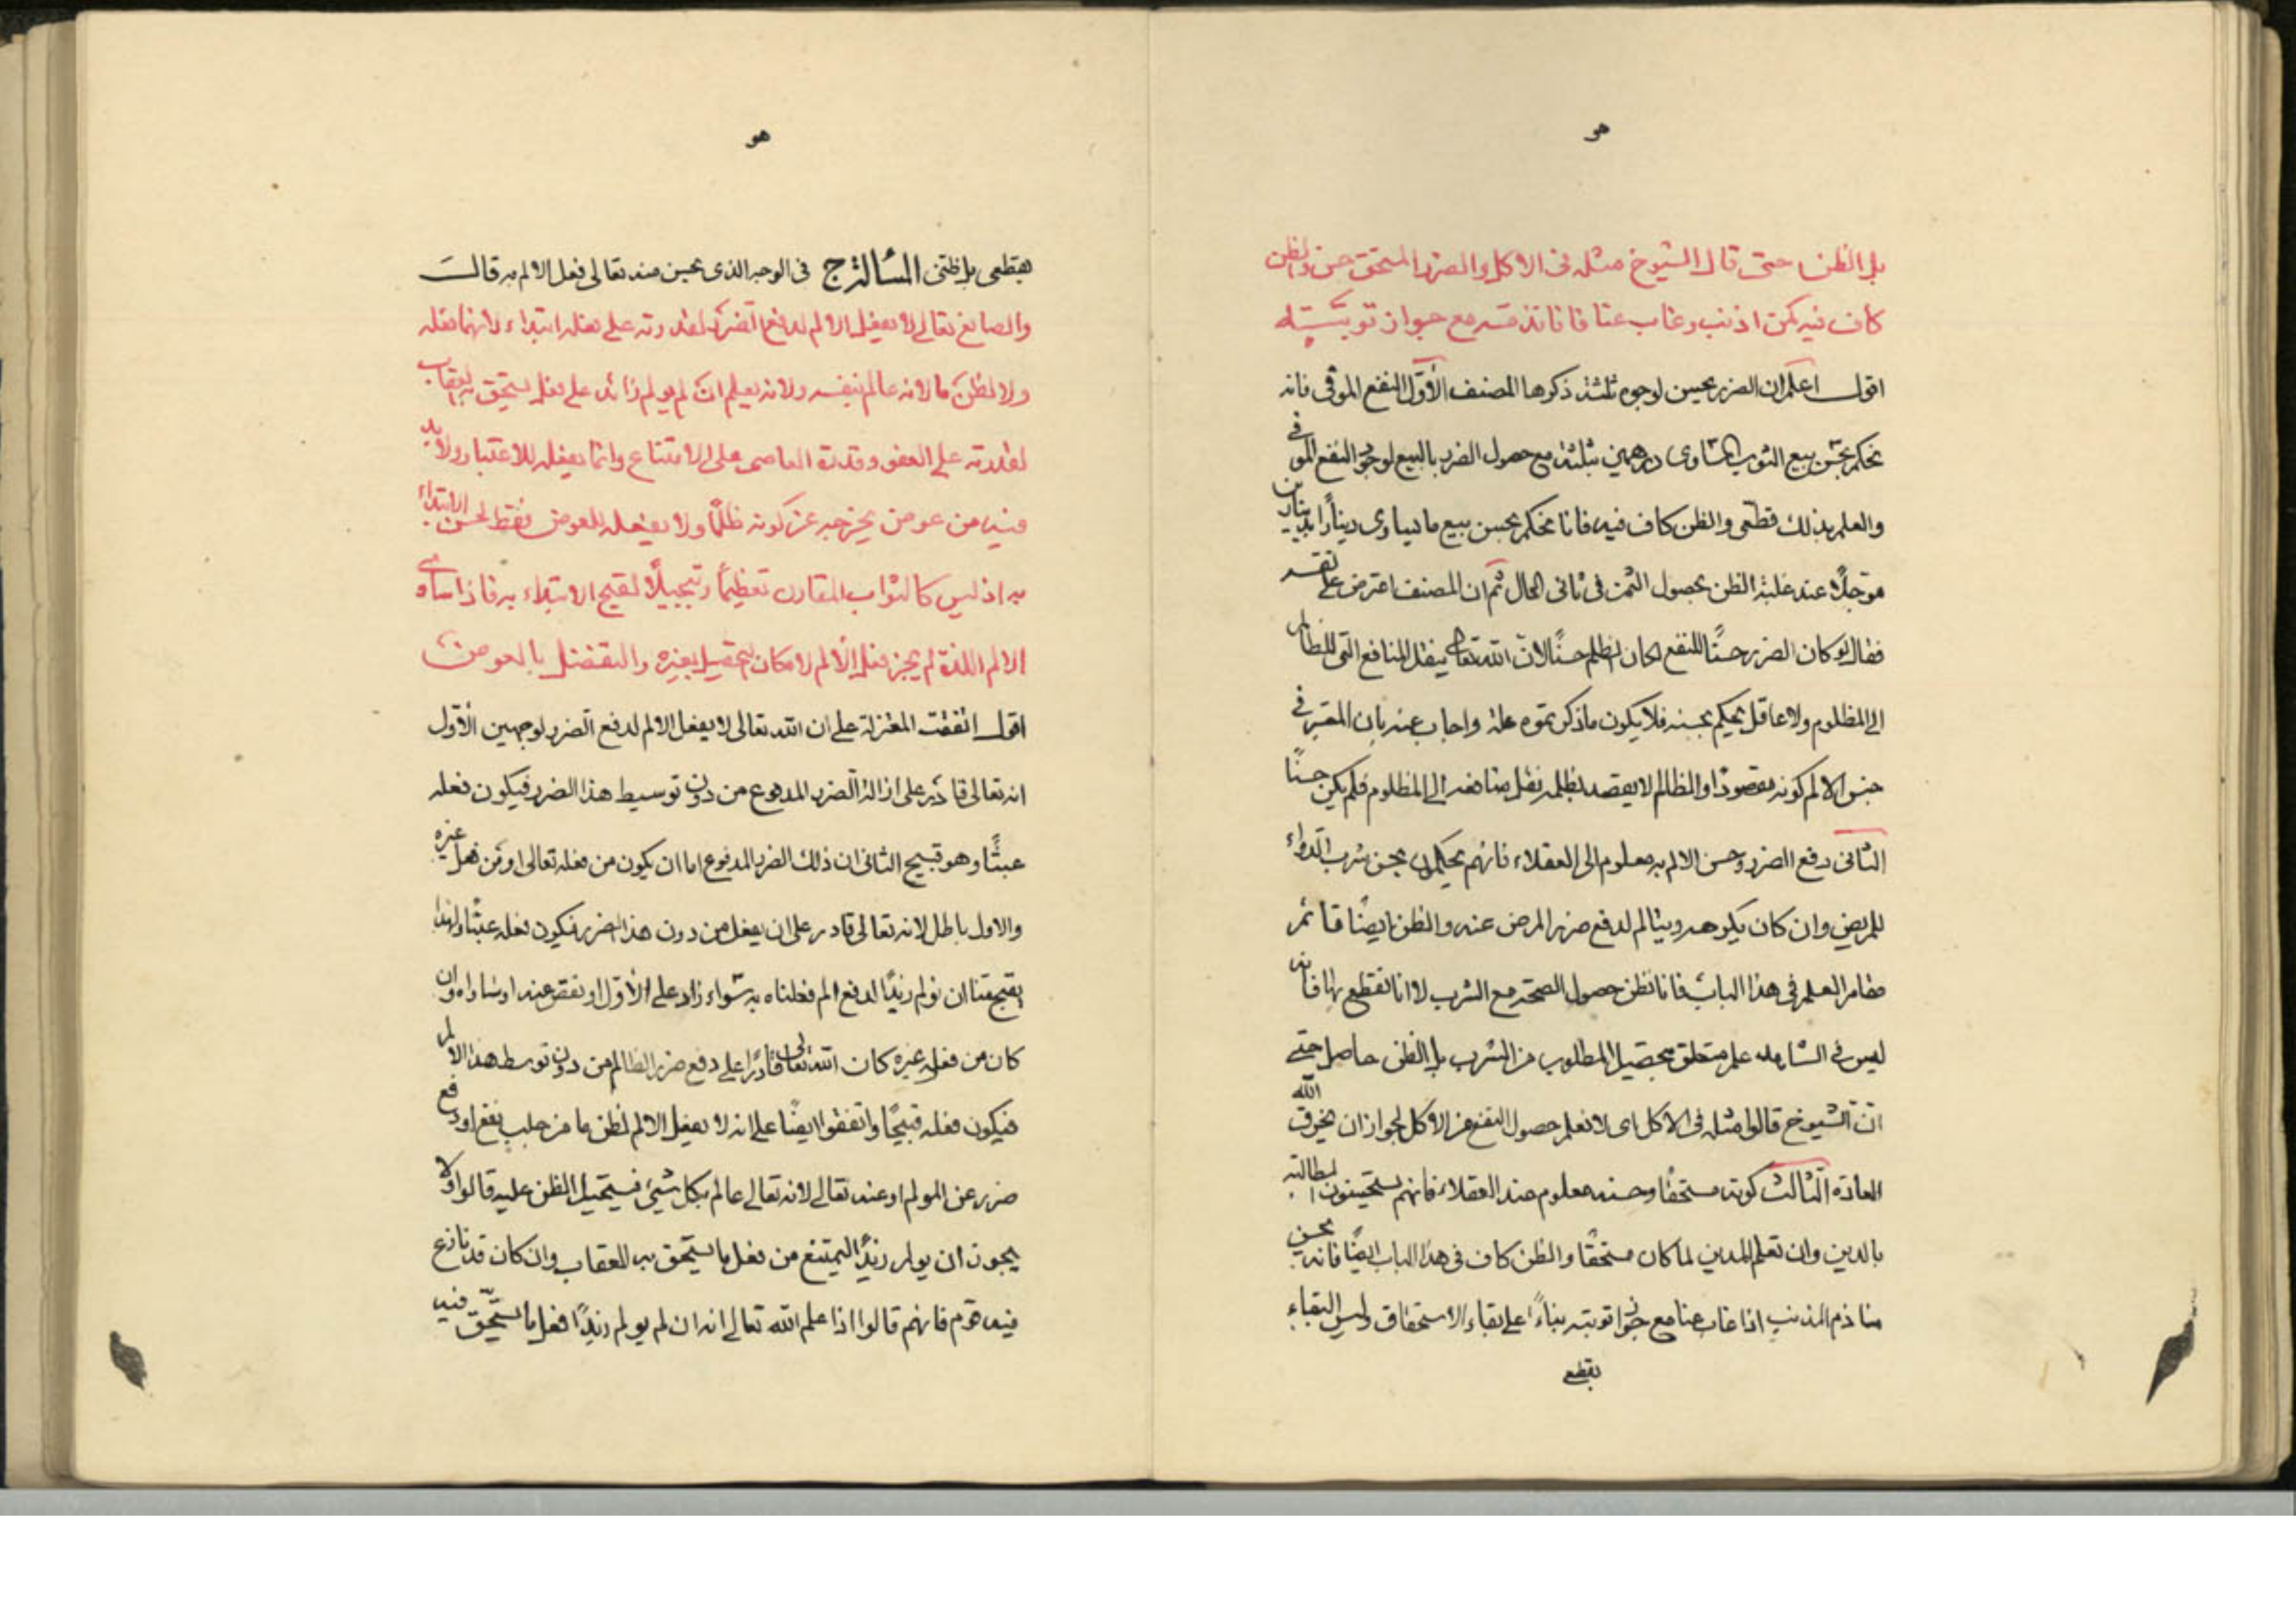 هو
بل الظن حتى قال الشيوخ مثله فى الاكل والضرر المستحق حسن والظن
كاف فيه كمن اذنب وغاب عنا فانا نذمه مع جواز توبته
اقول اعلم ان الضرر يحسن لوجوه ثلثة ذكرها المصنف الأوّل النفع الموفى فانه
يحكم بحسن بيع الثوب المساوى درهمين بثلثة مع حصول الضرر بالبيع لوجود النفع الموفى
والعلم بذلك قطعى والظن كاف فيه فانا نحكم بحسن بيع ما يساوى دينارًا بدينارين
مؤجلًا عند غلبة الظن بحصول الثمن فى ثانى الحال ثم ان المصنف اعترض على نفسه
فقال لو كان الضرر حسنًا للنفع لكان الظلم حسنًا لان الله تعالى ينقل المنافع التى للظالم
الى المظلوم ولا عاقل يحكم بحسنه فلا يكون ما ذكرتموه علة واجاب عنه بان المعتبر فى
حسن الالم كونه مقصودًا والظالم لا يقصد بظلمه نقل منافعه الى المظلوم فلم يكن حسنًا
الثانى دفع الضرر وحسن الالم به معلوم الى العقلاء فانهم يحكمون بحسن شرب الدواء
للمريض وان كان يكرهه ويتالم لدفع ضرر المرض عنه والظن ايضًا قائم
مقام العلم فى هذا الباب فانا نظن حصول الصحة مع الشرب لا انا نقطع بها فانه
ليس فى الشاهد علم متعلق بتحصيل المطلوب من الشرب بل الظن حاصل حتى
انّ الشيوخ قالوا مثله فى الاكل اى لا نعلم حصول النفع من الاكل لجواز ان يخرق الله
العادة الثالث كونه مستحقا وحسنه معلوم عند العقلاء فانهم يستحسنون المطالبة
بالدين وان تعلم المدين لما كان مستحقًا والظن كاف فى هذا الباب ايضًا فانه يحسن
منا ذم المذنب اذا غاب عنا مع جواز توبته بناءً على بقاء الاستحقاق وليس البقاء
بقطع
هو
بقطعى بل ظنى المسألة ج فى الوجه الذى يحسن منه تعالى فعل الالم به قال
والصانع تعالى لا يفعل الالم لدفع الضرر لقدرته على فعله ابتداء لانهما فعله
ولا لظن ما لانه عالم بنفسه ولانه يعلم ان لم يولم زائد على فعل يستحق به العقاب
لقدرته على العفو وقدرة العاصى على الامتناع وانما يفعله للاعتبار ولا بد
فيه من عوض يخرجه عن كونه ظلمًا ولا يفعله للعوض فقط لحسن الابتداء
به اذ ليس كالثواب المقارن تعظيمًا وتبجيلًا لقبح الابتداء به فاذا ساوى
الالم اللذة لم يجز فعل الألم لامكان تحصيل بغيره والتفضل بالعوض
اقول اتفقت المعتزلة على ان الله تعالى لا يفعل الالم لدفع الضرر لوجهين الأوّل
انه تعالى قادر على ازالة الضرر المدفوع من دون توسيط هذا الضرر فيكون فعله
عبثًا وهو قبيح الثانى ان ذلك الضرر المدفوع اما ان يكون من فعله تعالى او من فعل غيره
والاول باطل لانه تعالى قادر على ان يفعل من دون هذا الضرر فيكون فعله عبثًا ولهذا
يقبح منا ان نولم زيدًا لدفع الم فعلناه به سواء زاد على الأوّل او نقص عنه او ساواه وان
كان من فعل غيره كان الله تعالى قادرًا على دفع ضرر الظالم من دون توسط هذا الالم
فيكون فعله قبيحًا واتفقوا ايضًا على انه لا يفعل الالم لظن ما من جلب نفع او دفع
ضرر عن المولم او عنه تعالى لانه تعالى عالم بكل شىء فيستحيل الظن عليه قالوا ولا
يجوز ان يولم زيدًا ليمتنع من فعل ما يستحق به العقاب وان كان قد نازع
فيه قوم فانهم قالوا اذا علم الله تعالى انه ان لم يولم زيدًا فعل ما يستحق فيه